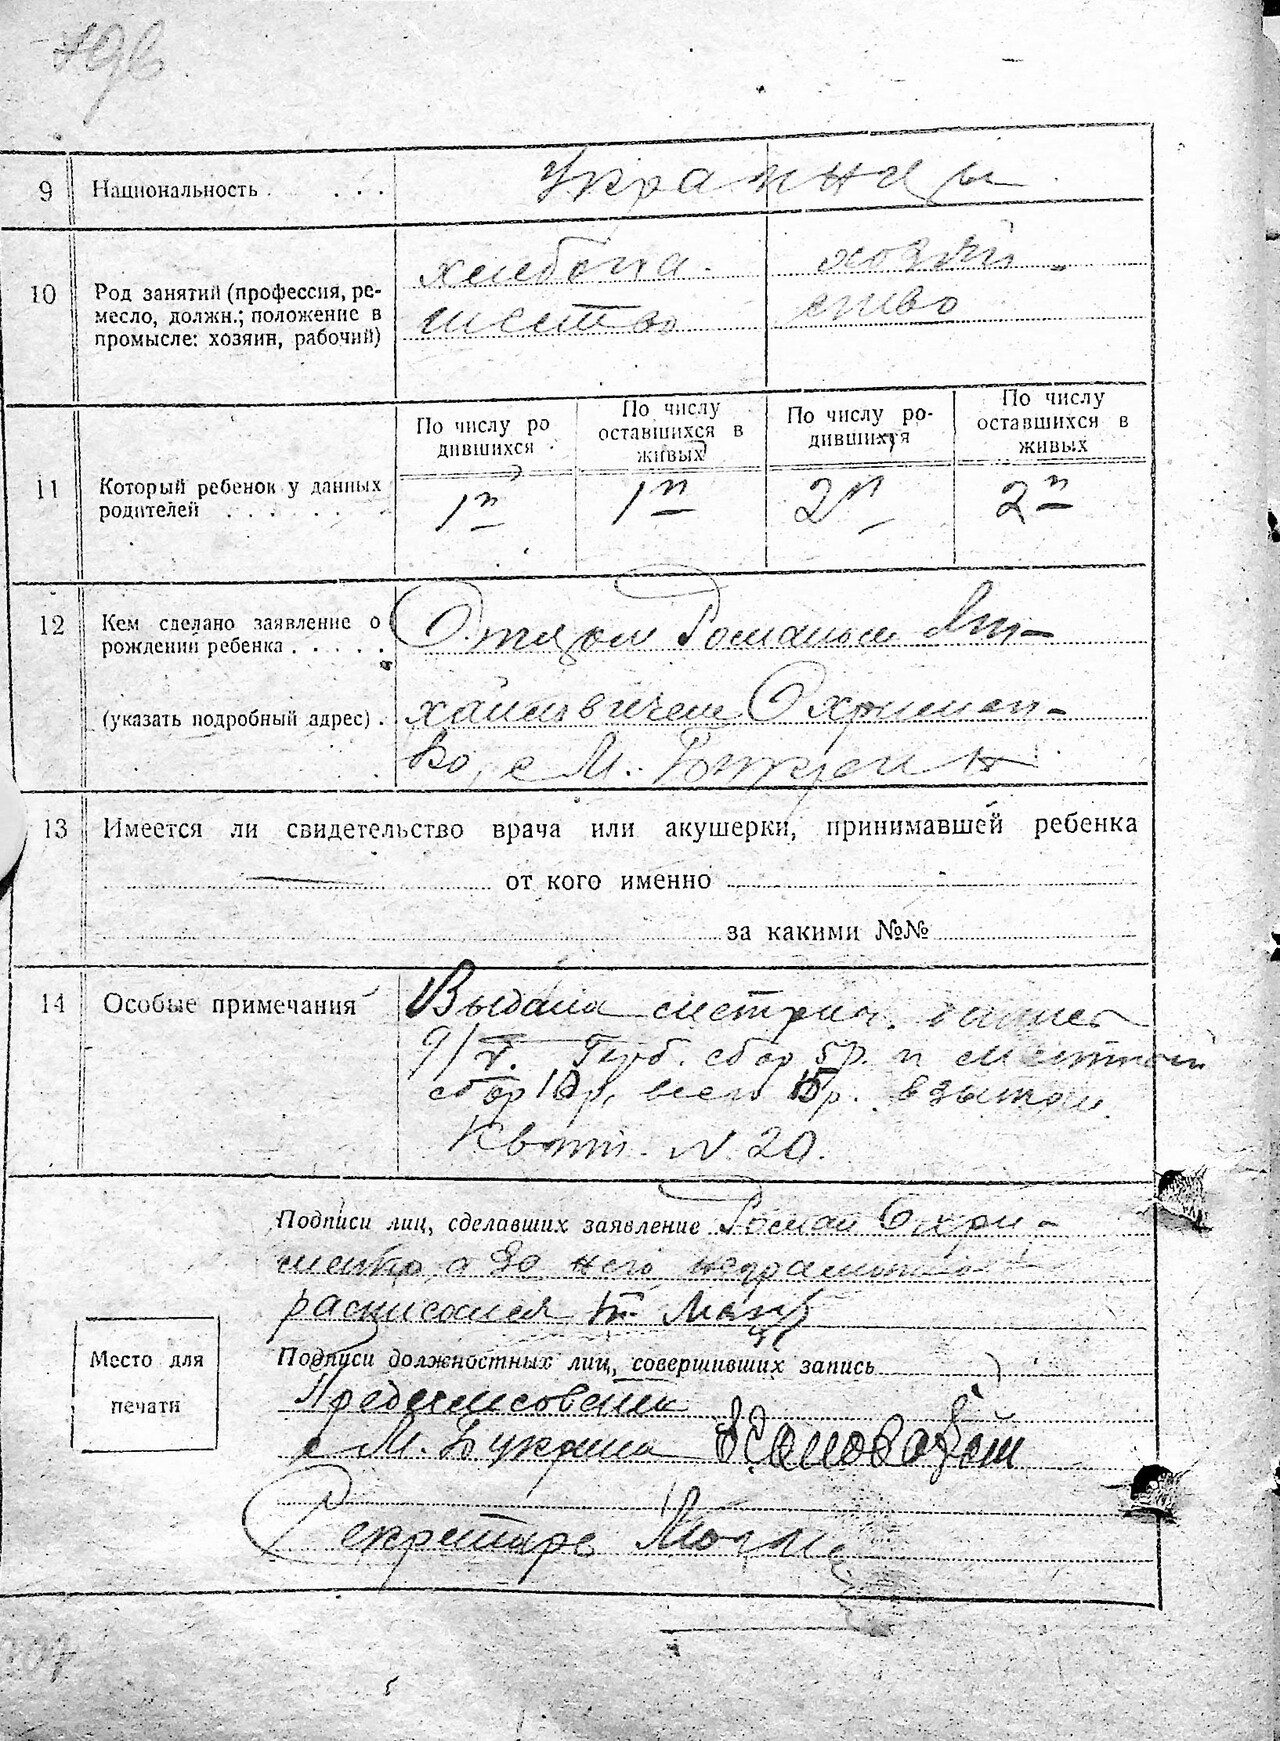 9 Национальность . . . . Украинцы
10 Род занятий (профессия, ре-
месло, должн.; положение в
промысле: хозяин, рабочий)
хлебопа-
шество
хозяй-
ство
11 Который ребенок у данных
родителей . . . . . .
По числу ро
дившихся
По числу
оставшихся в
живых
По числу ро-
дившихся
По числу
оставшихся в
живых
1й 1й 2й 2й
12 Кем сделано заявление о
рождении ребенка . . . . .
(указать подробный адрес) .
Отцом Романом Ми-
хайловичем Охримен-
ко, с М. Букрин
13 Имеется ли свидетельство врача или акушерки, принимавшей ребенка
от кого именно
за какими №№
14 Особые примечания
Выдана метрич.
9/V. Герб. сбор 5р. и местный
сбор 10р, всего 15р. взыскан
Квит. N. 20.
Подписи лиц, сделавших заявление Роман Охри-
менко, а за него неграмотного
расписался
Подписи должностных лиц, совершивших запись
Предсельсовета
с М. Букрина
Место для
печати
Секретарь